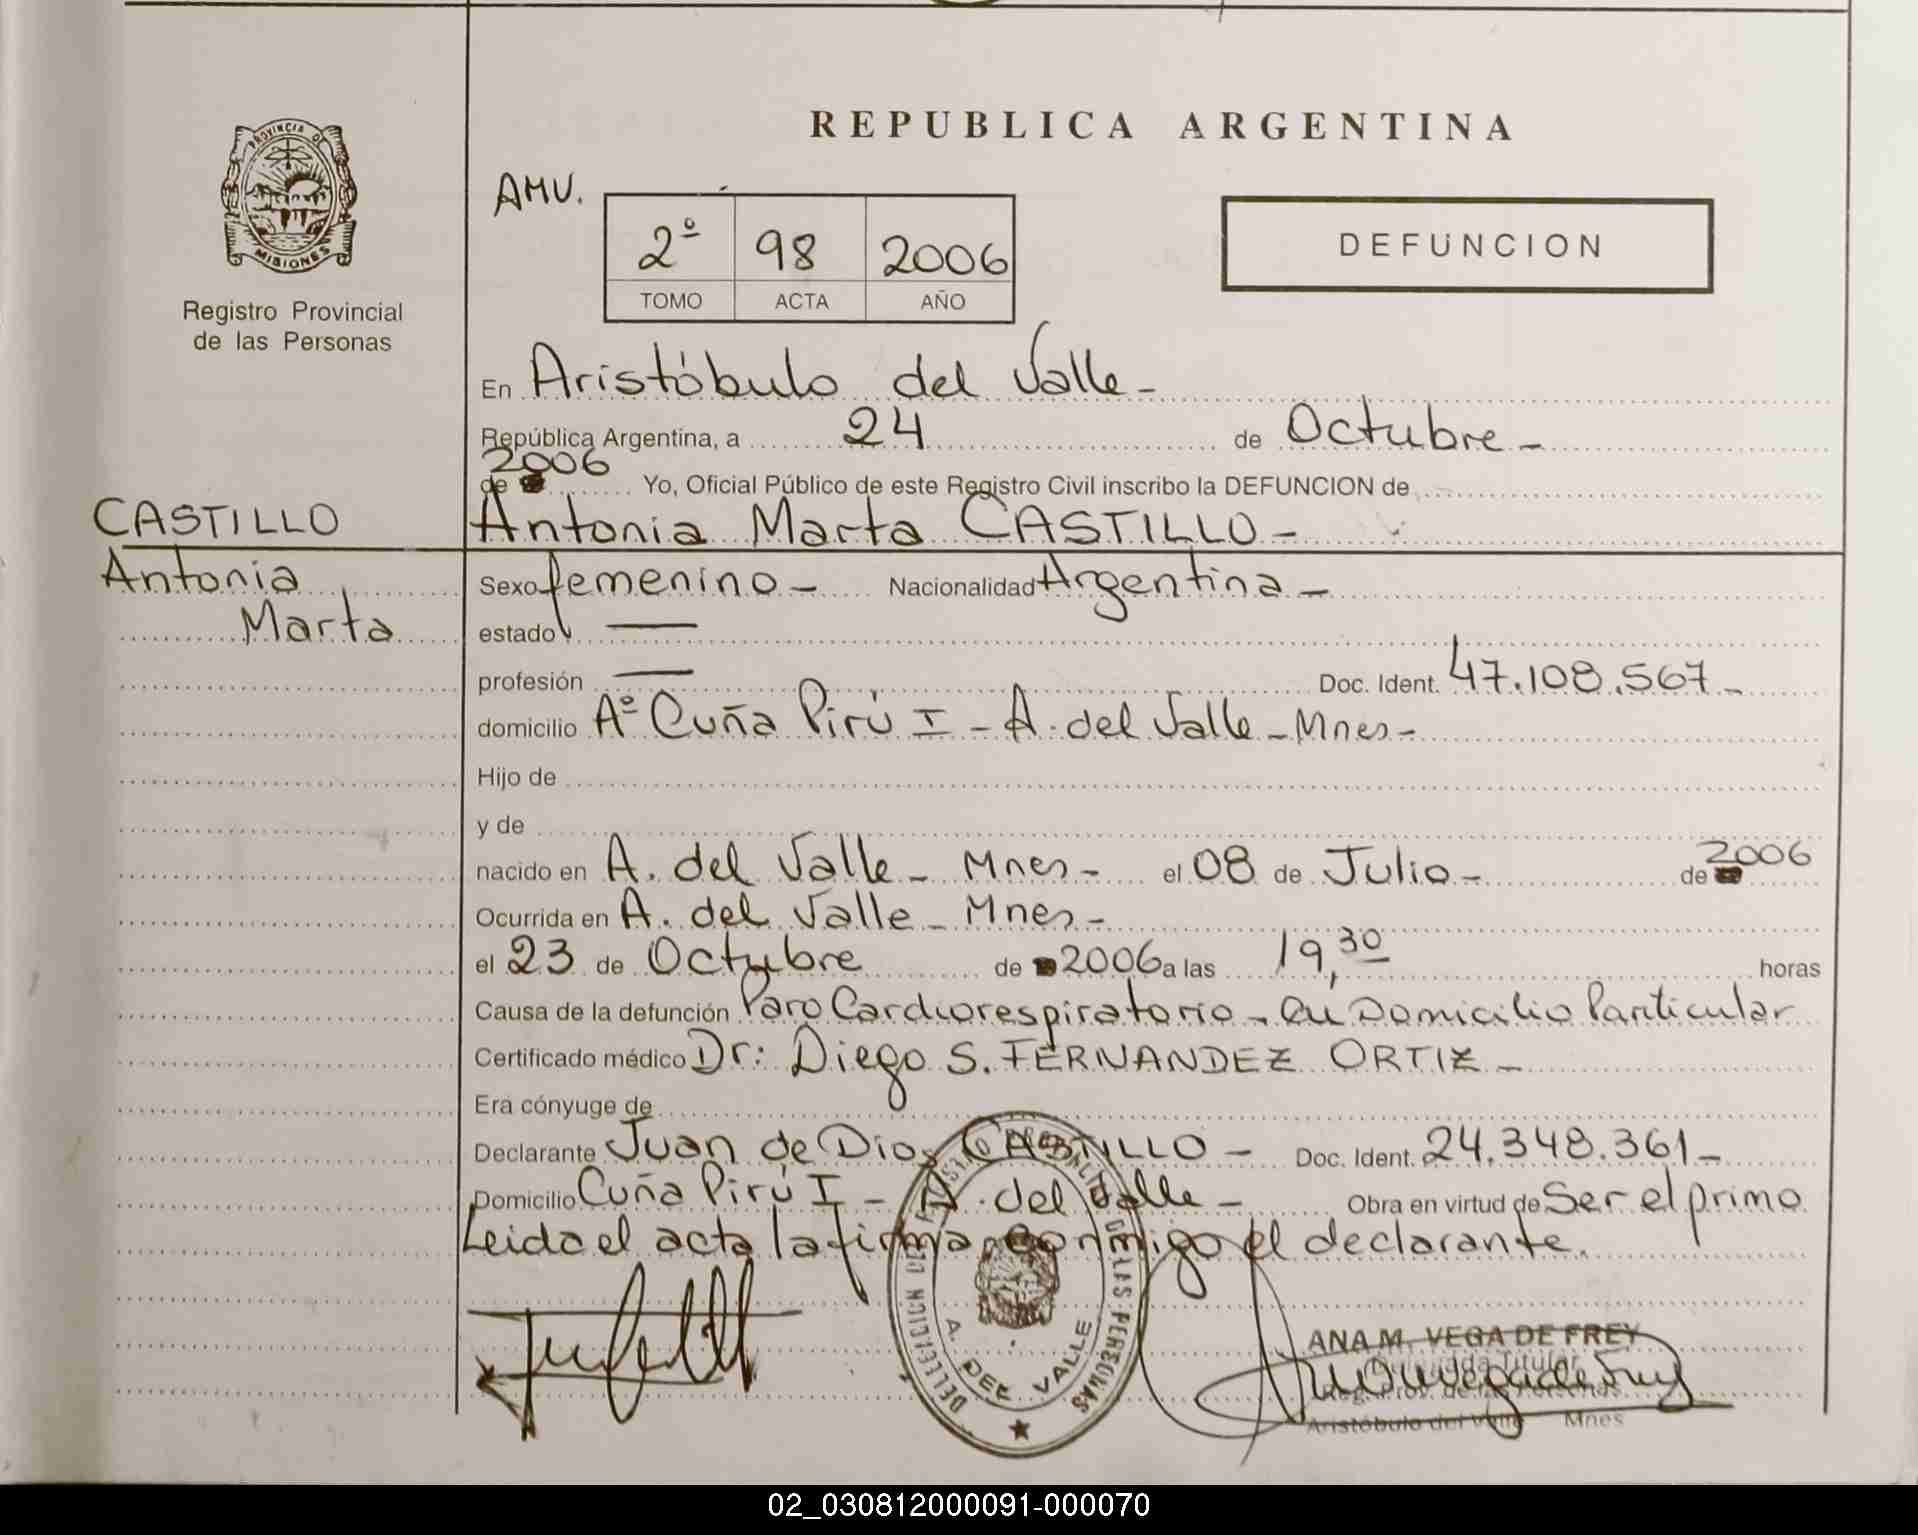 PROVINCIA DE
MISIONES
Registro Provincial
de las Personas
REPUBLICA ARGENTINA
AMV.
2º 98 2006
TOMO ACTA AÑO
DEFUNCION
En Aristóbulo del Valle -
República Argentina, a 24 de Octubre -
2006
de Yo, Oficial Público de este Registro Civil inscribo la DEFUNCION de
CASTILLO
Antonia Marta CASTILLO -
Antonia
Marta
Sexo femenino - Nacionalidad Argentina -
estado —
profesión — Doc. Ident. 47.108.567 -
domicilio Aº Cuña Pirú I - A. del Valle - Mnes -
Hijo de
y de
nacido en A. del Valle - Mnes - el 08 de Julio - de 2006
Ocurrida en A. del Valle - Mnes -
el 23 de Octubre de 2006 a las 19,30 horas
Causa de la defunción Paro Cardiorespiratorio - en Domicilio Particular
Certificado médico Dr: Diego S. FERNANDEZ ORTIZ -
Era cónyuge de
Declarante Juan de Dios CASTILLO - Doc. Ident. 24.348.361 -
Domicilio Cuña Pirú I - A. del Valle - Obra en virtud de Ser el primo
Leida el acta la firma conmigo el declarante.
A. DEL VALLE
ANA M. VEGA DE FREY
Delegada Titular
Reg. Prov. de las Personas
Aristóbulo del Valle Mnes
02_030812000091-000070